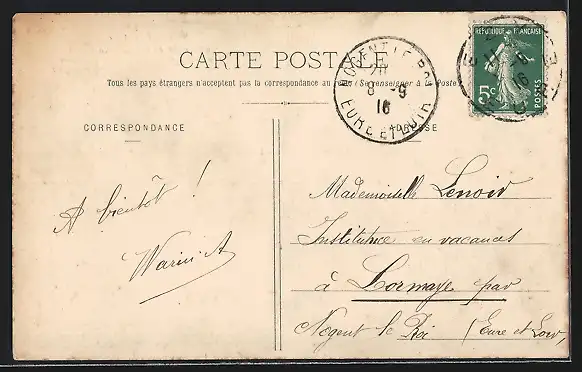 CARTE POSTALE
Tous les pays étrangers n'acceptent pas la correspondance au recto (Se renseigner à la Poste)
CORRESPONDANCE
ADRESSE
NOGENT LE ROI
20
8 - 9
16
EURE ET LOIR
REPUBLIQUE FRANÇAISE
5c
POSTES
A bientôt !
Warin A
Mademoiselle Lenoir
Institutrice en vacances
à Lormaye par
Nogent le Roi (Eure et Loir,